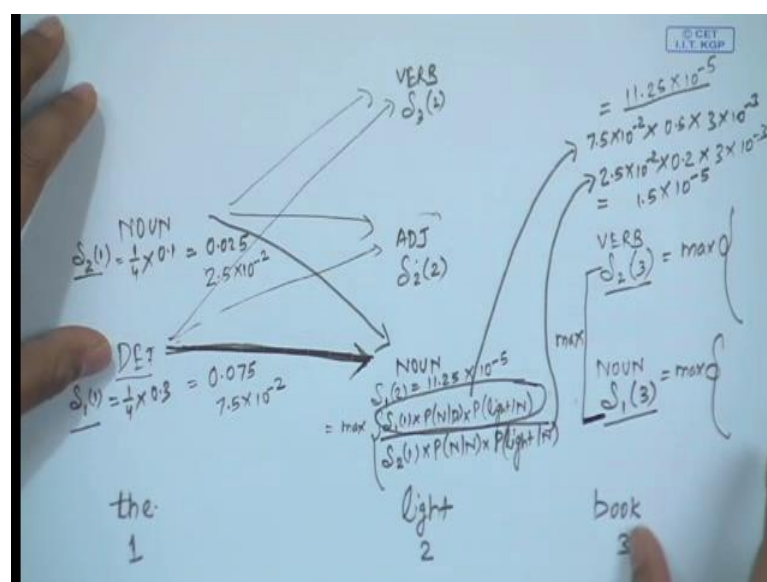 © CET
I.I.T. KGP
VERB
δ3(2)
= 11.25×10^-5
7.5×10^-2 × 0.5 × 3×10^-3
2.5×10^-2 × 0.2 × 3×10^-3
= 1.5×10^-5
NOUN
δ2(1) = 1/4 × 0.1 = 0.025
2.5×10^-2
ADJ
δ2(2)
VERB
δ2(3) = max {
DET
δ1(1) = 1/4 × 0.3 = 0.075
7.5×10^-2
NOUN
δ1(2) = 11.25 × 10^-5
= max { δ1(1) × P(N|D) × P(light|N)
δ2(1) × P(N|N) × P(light|N)
max
NOUN
δ1(3) = max {
the
1
light
2
book
3